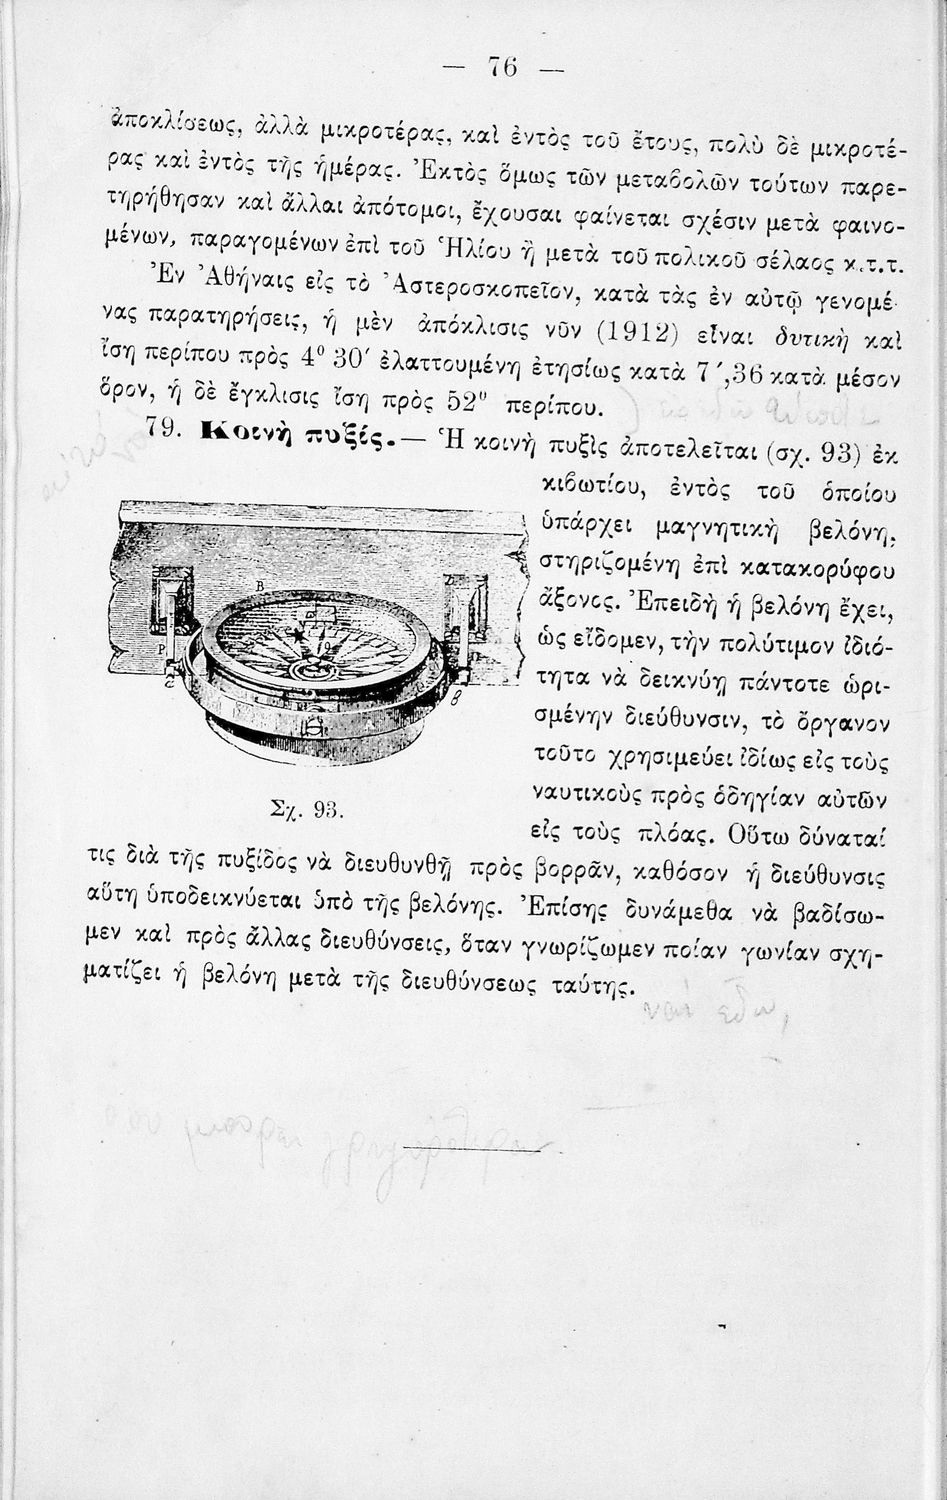 — 76 —
ἀποκλίσεως, ἀλλὰ μικροτέρας, καὶ ἐντὸς τοῦ ἔτους, πολὺ δὲ μικροτέ-
ρας καὶ ἐντὸς τῆς ἡμέρας. Ἐκτὸς ὅμως τῶν μεταβολῶν τούτων παρε-
τηρήθησαν καὶ ἄλλαι ἀπότομοι, ἔχουσαι φαίνεται σχέσιν μετὰ φαινο-
μένων, παραγομένων ἐπὶ τοῦ Ἡλίου ἢ μετὰ τοῦ πολικοῦ σέλαος κ.τ.τ.
Ἐν Ἀθήναις εἰς τὸ Ἀστεροσκοπεῖον, κατὰ τὰς ἐν αὐτῷ γενομέ-
νας παρατηρήσεις, ἡ μὲν ἀπόκλισις νῦν (1912) εἶναι δυτικὴ καὶ
ἴση περίπου πρὸς 4⁰ 30′ ἐλαττουμένη ἐτησίως κατὰ 7′,36 κατὰ μέσον
ὅρον, ἡ δὲ ἔγκλισις ἴση πρὸς 52⁰ περίπου.
79. Κοινὴ πυξίς.— Ἡ κοινὴ πυξὶς ἀποτελεῖται (σχ. 93) ἐκ
κιβωτίου, ἐντὸς τοῦ ὁποίου
ὑπάρχει μαγνητικὴ βελόνη,
στηριζομένη ἐπὶ κατακορύφου
ἄξονος. Ἐπειδὴ ἡ βελόνη ἔχει,
ὡς εἴδομεν, τὴν πολύτιμον ἰδιό-
τητα νὰ δεικνύῃ πάντοτε ὡρι-
σμένην διεύθυνσιν, τὸ ὄργανον
τοῦτο χρησιμεύει ἰδίως εἰς τοὺς
ναυτικοὺς πρὸς ὁδηγίαν αὐτῶν
εἰς τοὺς πλόας. Οὕτω δύναταί
B
P
A
Σχ. 93.
τις διὰ τῆς πυξίδος νὰ διευθυνθῇ πρὸς βορρᾶν, καθόσον ἡ διεύθυνσις
αὕτη ὑποδεικνύεται ὑπὸ τῆς βελόνης. Ἐπίσης δυνάμεθα νὰ βαδίσω-
μεν καὶ πρὸς ἄλλας διευθύνσεις, ὅταν γνωρίζωμεν ποίαν γωνίαν σχη-
ματίζει ἡ βελόνη μετὰ τῆς διευθύνσεως ταύτης.